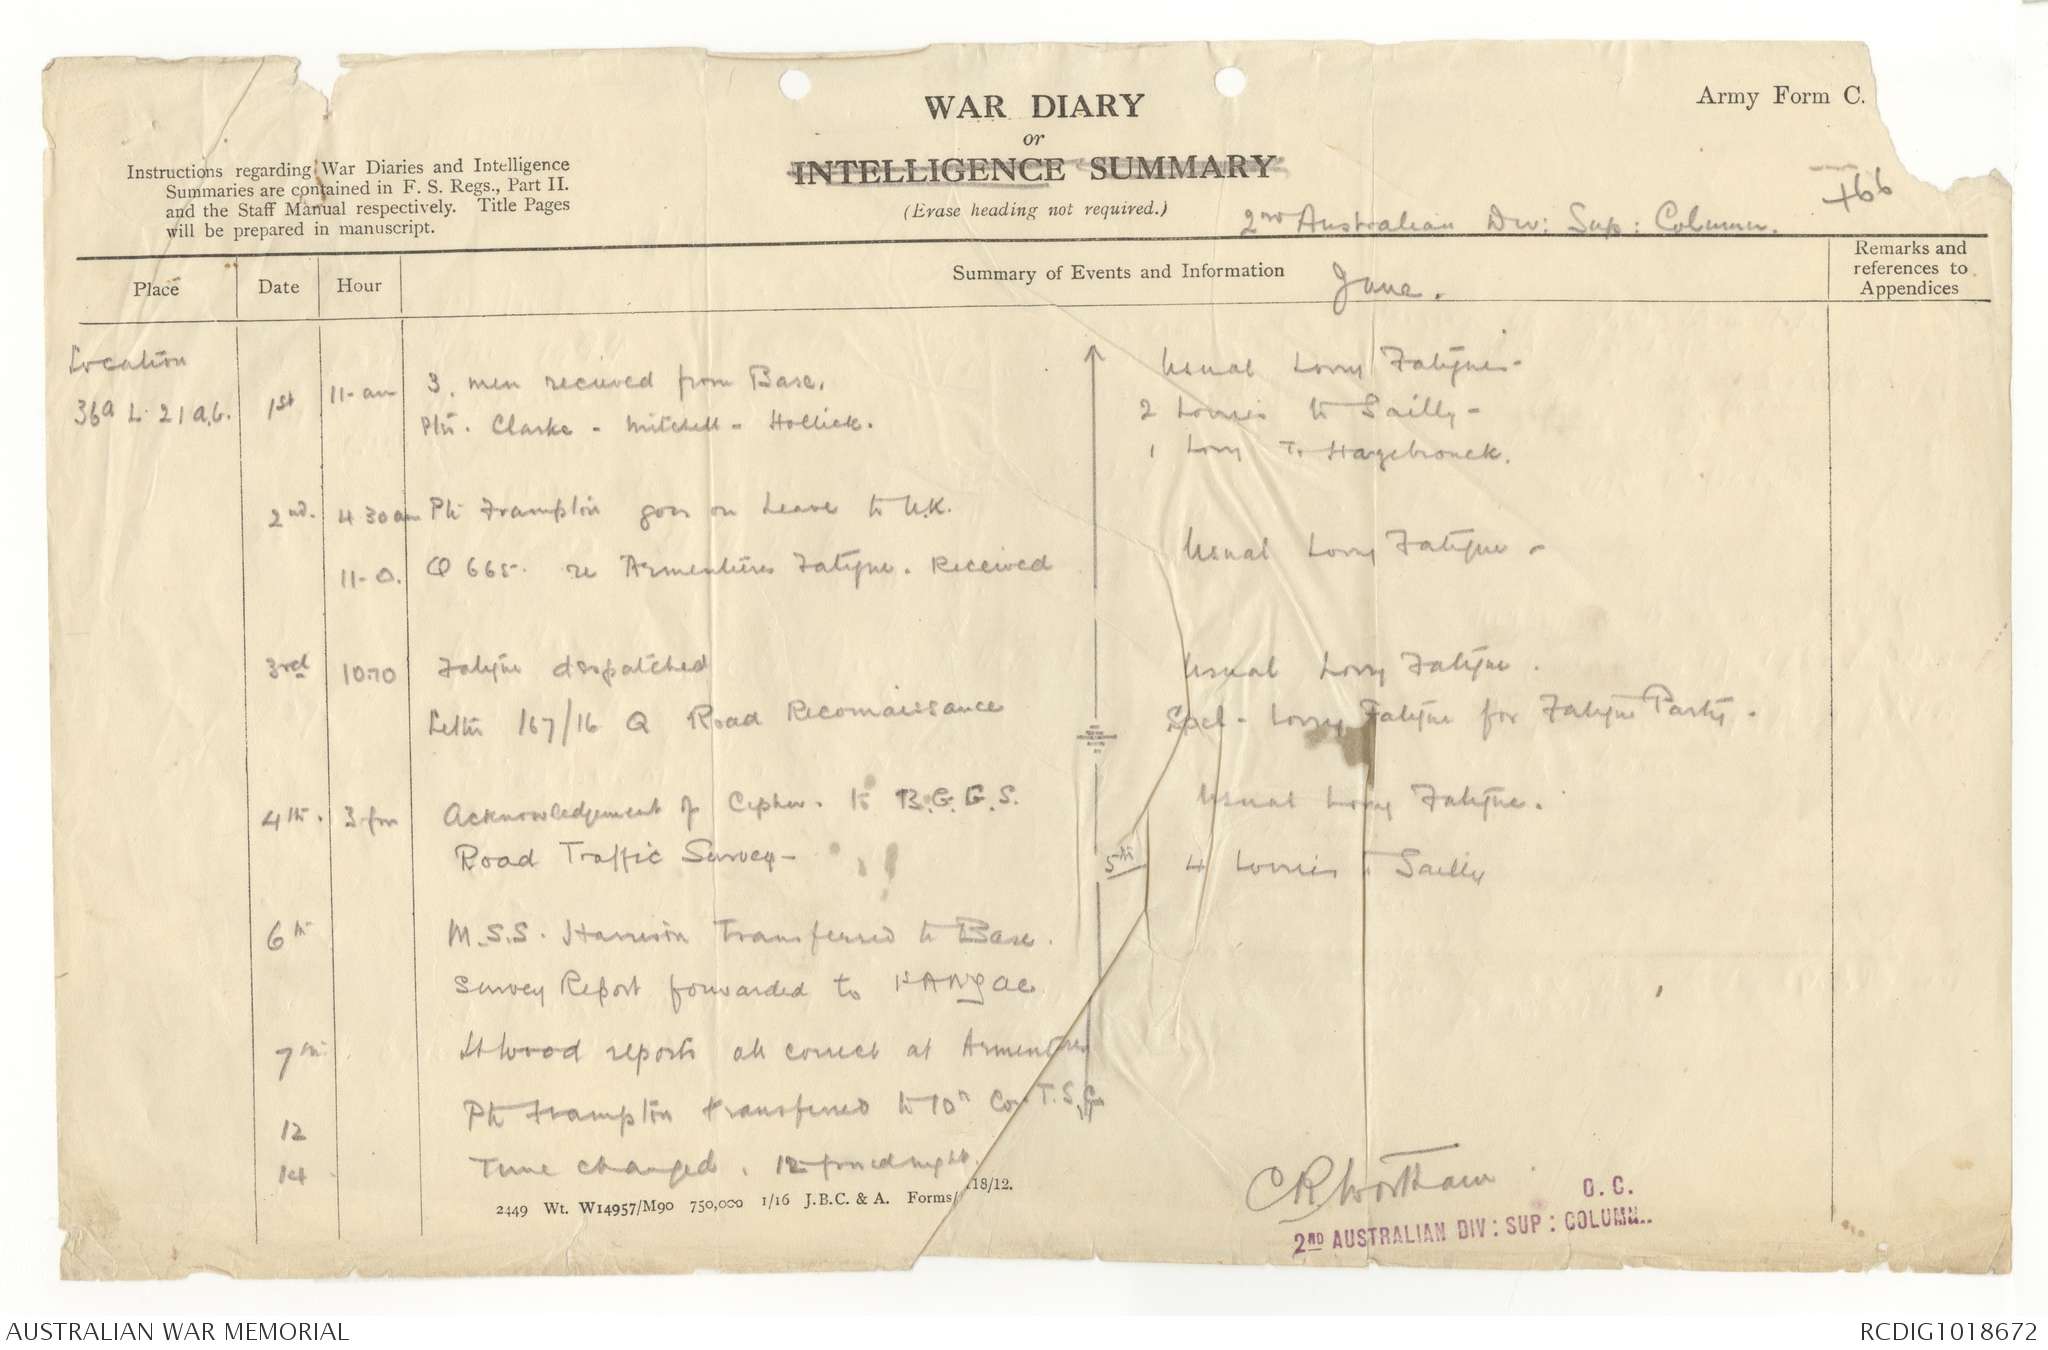 WAR DIARY
or
INTELLIGENCE SUMMARY
(Erase heading not required.)
Army Form C.
Instructions regarding War Diaries and Intelligence
Summaries are contained in F. S. Regs., Part II.
and the Staff Manual respectively. Title Pages
will be prepared in manuscript.
2nd Australian Div: Sup: Column.
Place
Date
Hour
Summary of Events and Information
June.
Remarks and
references to
Appendices
Location
36A L. 21 a.b.
1st 11-am 3. men recieved from Base.
Usual Lorry Fatigues -
Ptes. Clarke - Mitchell - Hollick.
2 Lorries to Sailly -
1 Lorry To Hazebrouck.
2nd. 4 30am Pte Frampton goes on Leave to U.K.
Usual Lorry Fatigue -
11-0. Q 665. re Armentieres Fatigue. Received
3rd Fatigue despatched
Usual Lorry Fatigue.
Letter 167/16 Q Road Reconaissance
Spcl - Lorry Fatigue for Fatigue Party.
4th. 3 pm Acknowledgement of Cipher. to B.G.G.S.
Usual Lorry Fatigue.
Road Traffic Survey -
5th 4 Lorries to Sailly
6th M.S.S. Harrison Transferred to Base.
Survey Report forwarded to
7th Lt Wood reports all correct at Armentieres
12 Pte Frampton transferred to Co T.S.C.
14 Time changed. 12 midnight.
2449 Wt. W14957/M90 750,000 1/16 J.B.C. & A. Forms/ 118/12.
C R Wortham
O. C.
2ND AUSTRALIAN DIV: SUP: COLUMN..
AUSTRALIAN WAR MEMORIAL
RCDIG1018672